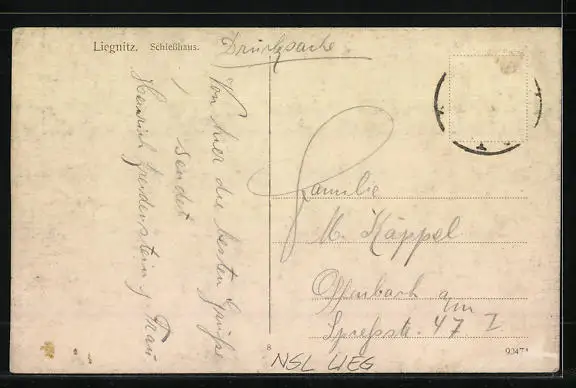 Liegnitz. Schießhaus.
Drucksache
Von hier die besten Grüße
sendet
Heinrich Breidenstein u. Frau
Familie
M. Käppel
Offenbach a/m
Spreßstr. 47 I
8
NSL LIEG